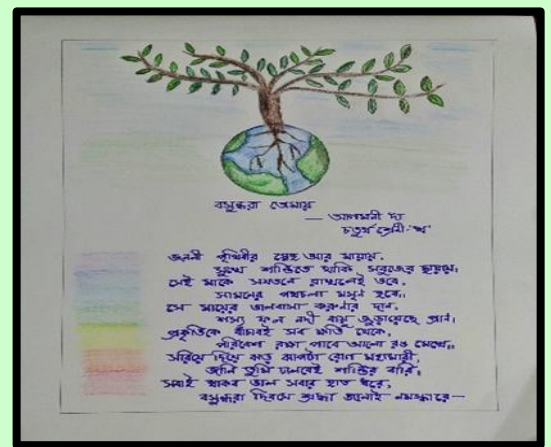 বসুন্ধরা তোমায়
— আগমনী দা
চতুর্থ শ্রেণী-'খ'
জননী পৃথিবীর স্নেহ আর মায়ায়,
সুখে শান্তিতে থাকি সবুজের ছায়ায়।
সেই মাকে সযতনে রাখলেই তবে,
সামনের পথচলা মসৃণ হবে।
সে মায়ের ভালবাসা করুণার দান,
শস্য ফল নদী বায়ু জুড়ায়েছে প্রাণ।
প্রকৃতিকে বাঁচাবই সব ক্ষতি থেকে,
পরিবেশ রক্ষা পাবে আলো রঙ মেখে।
সরিয়ে দিয়ে ঝড় ঝাপটা রোগ মহামারী,
জানি তুমি ঢালবেই শান্তির বারি,
সবাই থাকব ভাল সবার হাত ধরে,
বসুন্ধরা দিবসে শ্রদ্ধা জানাই নমস্কারে—